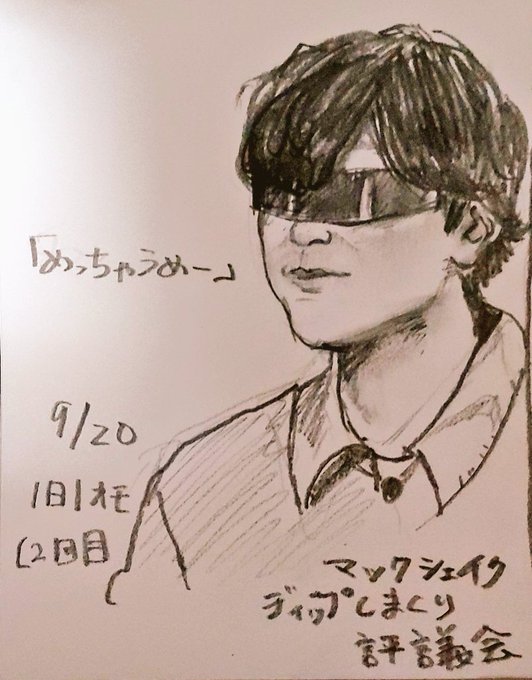 「めっちゃうめー」
9/20
1日1オモ
(2回目
マックシェイク
ディップしまくり
評議会